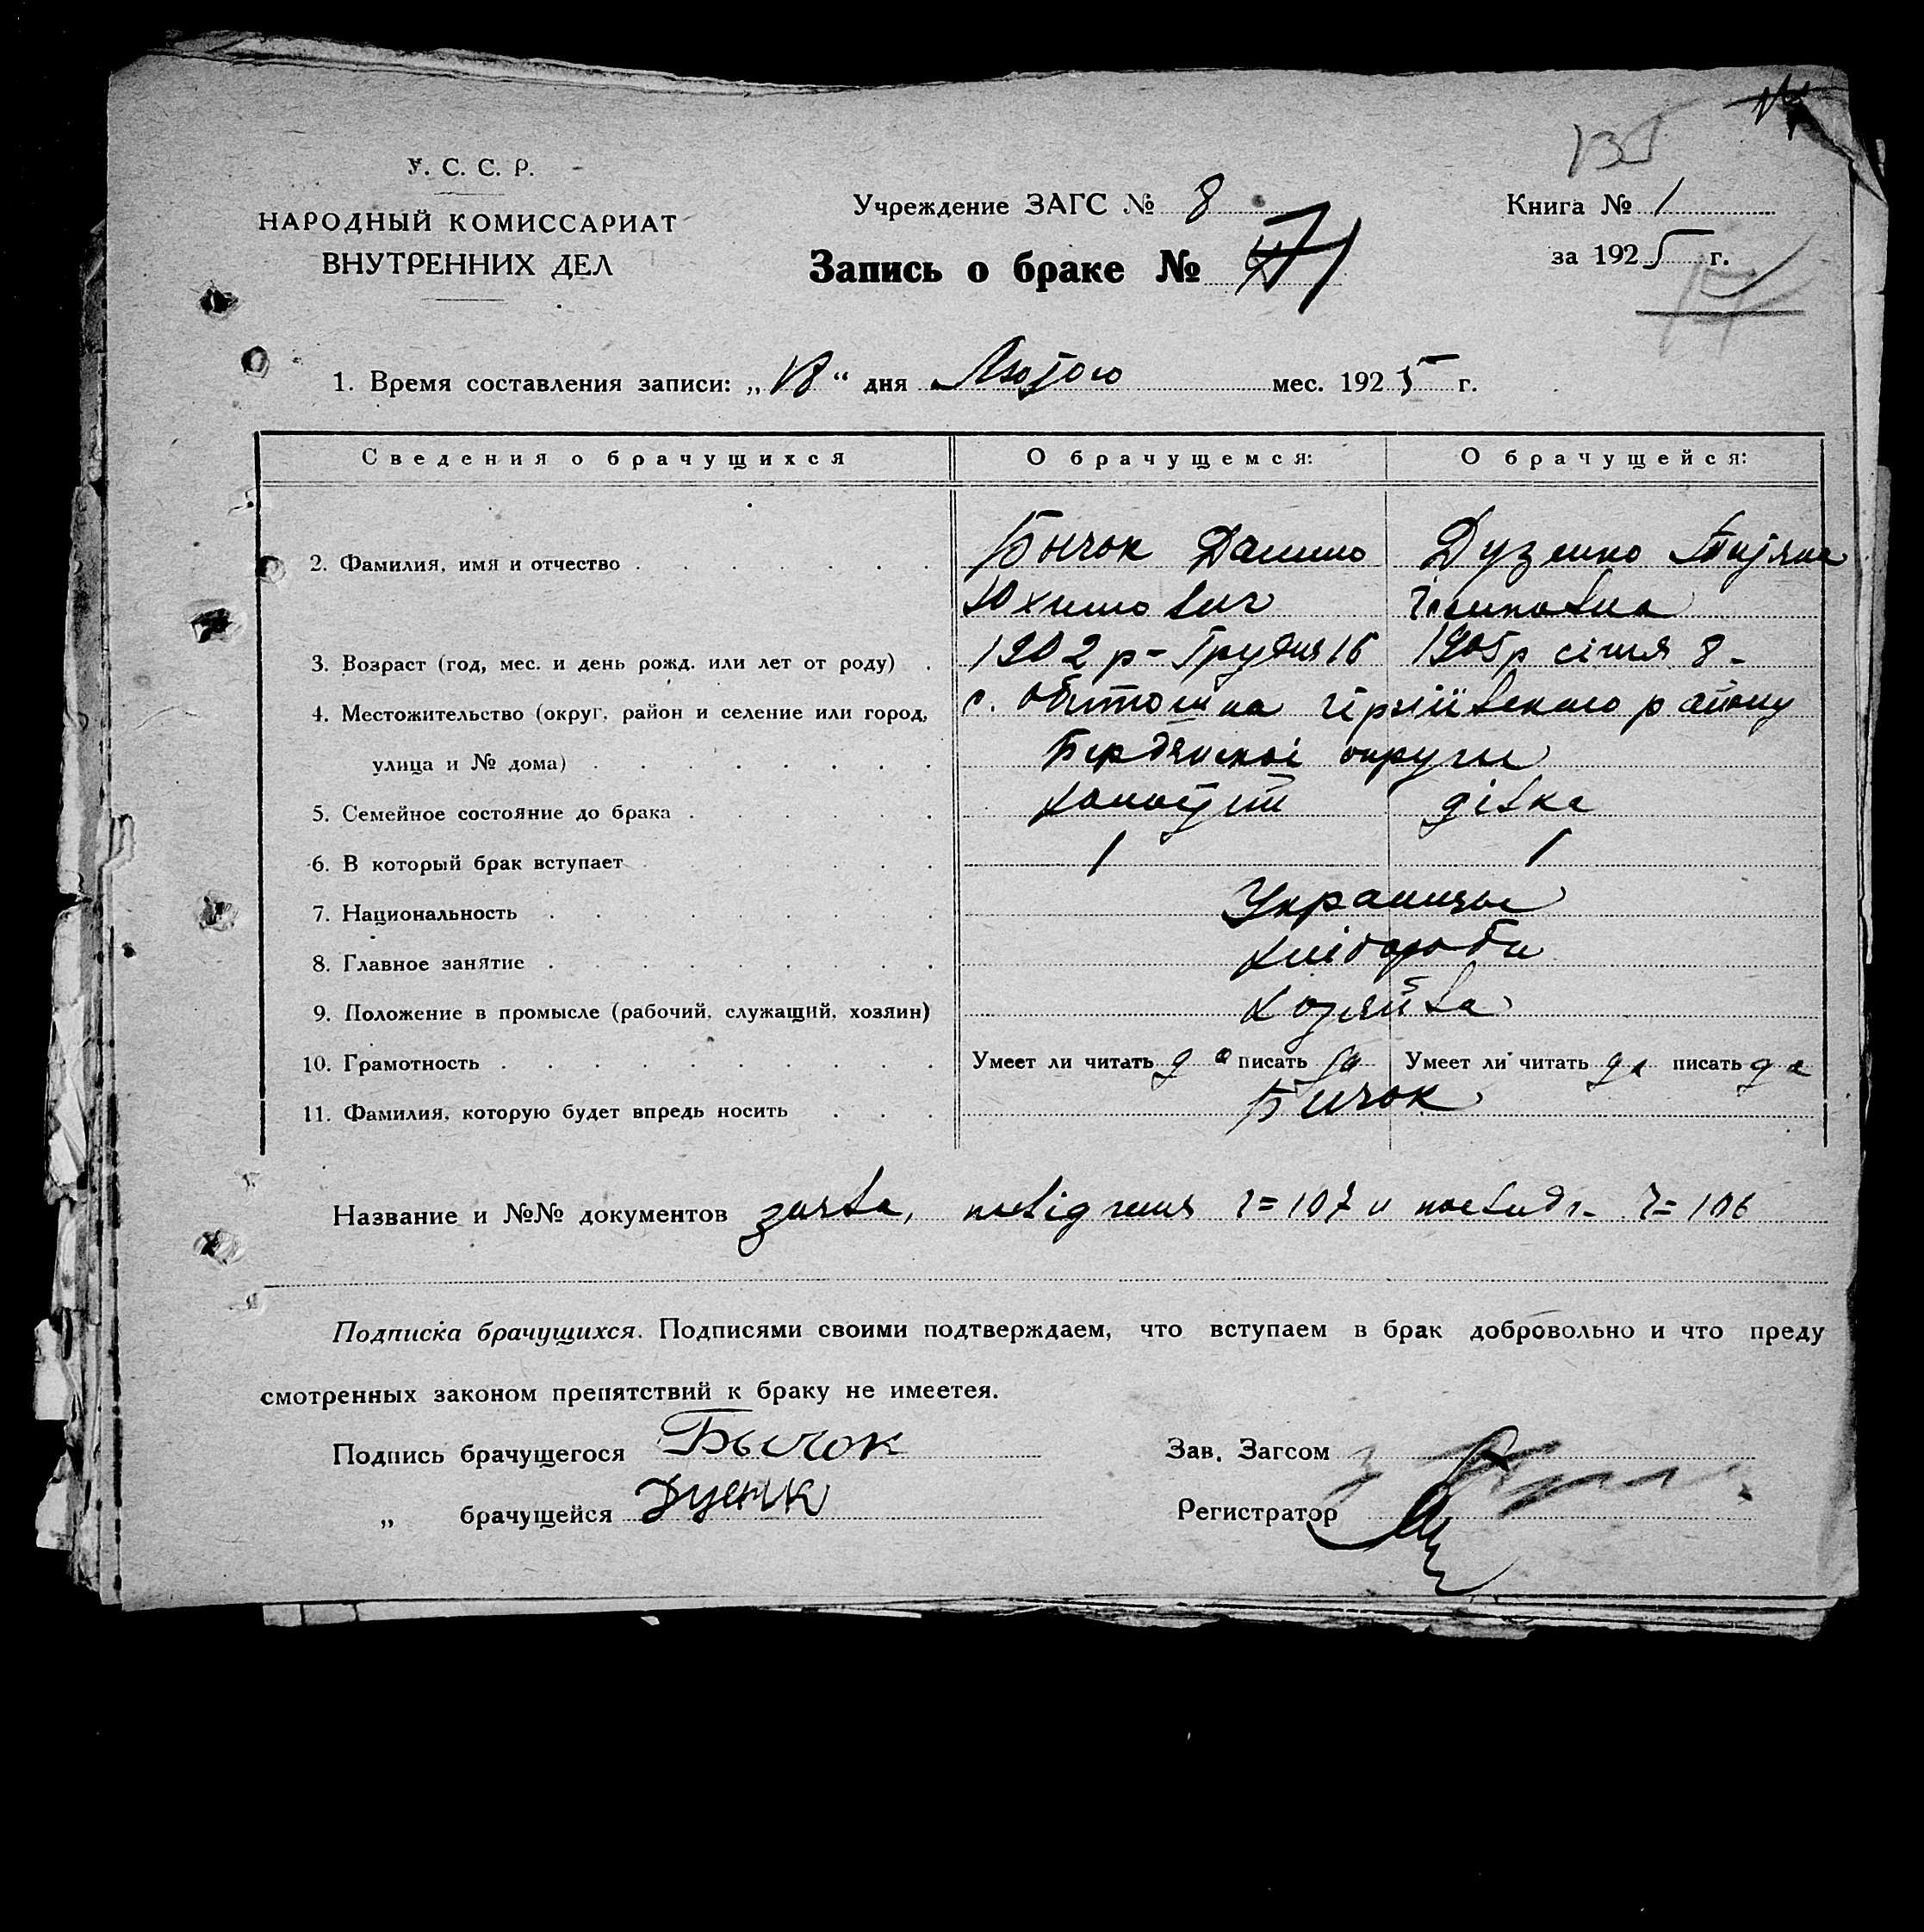 135
У. С. С. Р.
НАРОДНЫЙ КОМИССАРИАТ
ВНУТРЕННИХ ДЕЛ
Учреждение ЗАГС № 8
Запись о браке №
Книга № 1
за 1925 г.
1. Время составления записи: „18“ дня Лютого мес. 1925 г.
Сведения о брачущихся О брачущемся: О брачущейся:
2. Фамилия, имя и отчество Бычок Данило Дузенко Татяна
Юхимович
3. Возраст (год, мес. и день рожд. или лет от роду) 1902 р - Грудня 16 1905 р січня 8 -
4. Местожительство (округ, район и селение или город, с. Обиточна района
улица и № дома) Бердянскоі округи
5. Семейное состояние до брака холостий дівка
6. В который брак вступает 1 1
7. Национальность Украинцы
8. Главное занятие хліборобы
9. Положение в промысле (рабочий, служащий, хозяин) хозяйва
10. Грамотность Умеет ли читать да писать да Умеет ли читать да писать да
11. Фамилия, которую будет впредь носить Бичок
Название и №№ документов 107 и 106
Подписка брачущихся. Подписями своими подтверждаем, что вступаем в брак добровольно и что преду
смотренных законом препятствий к браку не имеетея.
Подпись брачущегося Бычок
Зав. Загсом
„ брачущейся
Регистратор